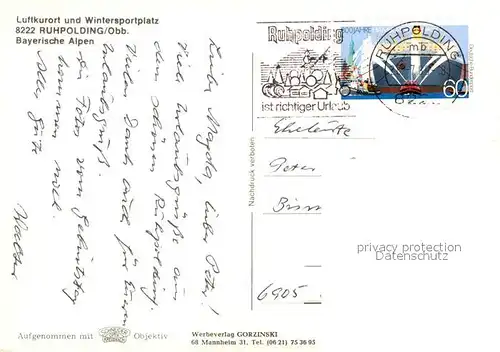 Luftkurort und Wintersportplatz
8222 RUHPOLDING/Obb.
Bayerische Alpen
Liebe Magda, lieber Peter!
Viel Urlaubsgrüße aus
dem schönen Ruhpolding.
Vielen Dank auch für Euren
Urlaubsgruß.
die Fotos vom Geburtstag
bekommen wir noch.
Alles Gute
Walter
Ruhpolding
ist richtiger Urlaub
RUHPOLDING
mb
800 JAHRE
60
Eheleute
Peter
6905
Nachdruck verboten
privacy protection
Datenschutz
Aufgenommen mit Objektiv
Werbeverlag GORZINSKI
68 Mannheim 31, Tel. (06 21) 75 36 95